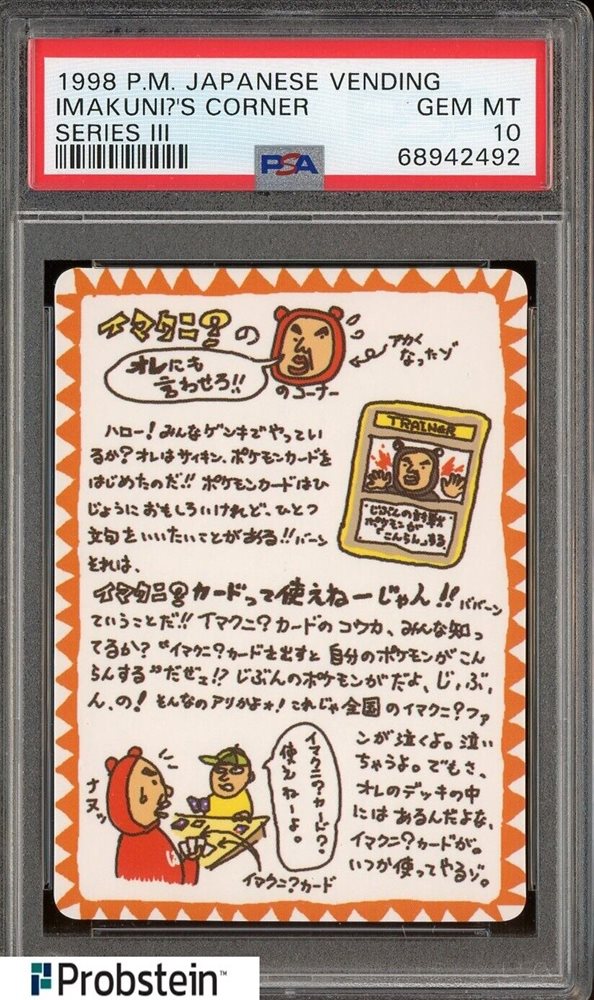 1998 P.M. JAPANESE VENDING
IMAKUNI?'S CORNER GEM MT
SERIES III 10
PSA 68942492
イマクニ?の
オレにも
言わせろ!!
のコーナー
アカく
なったゾ
ハロー!みんなゲンキでやってい
るか?オレはサイキン、ポケモンカードを
はじめたのだ!!ポケモンカードはひ
じょうにおもしろいけれど、ひとつ
文句をいいたいことがある!!バーン
それは、
TRAINER
じぶんの
ポケモンが
「こんらん」する
イマクニ?カードって使えねーじゃん!!ババーン
ていうことだ!!イマクニ?カードのコウカ、みんな知っ
てるか?“イマクニ?カードを出すと自分のポケモンがこん
らんする”だぜェ!?じぶんのポケモンがだよ、じ、ぶ、
ん、の!そんなのアリかよォ!これじゃ全国のイマクニ?ファ
ンが泣くよ。泣い
ちゃうよ。でもさ、
オレのデッキの中
にはあるんだよな、
イマクニ?カードが。
いつか使ってやるゾ。
ナヌッ
イマクニ?カード?
使えねーよ。
イマクニ?カード
Probstein™